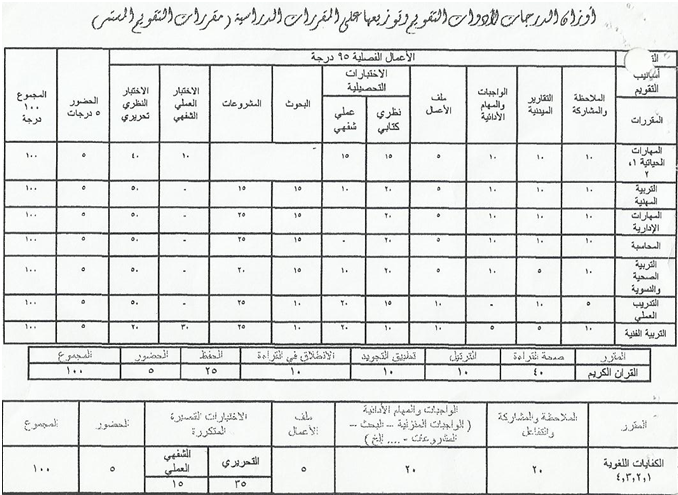 أوزان الدرجات لأدوات التقويم وتوزيعها على المقررات الدراسية ( مقررات التقويم المستمر )
الأعمال الفصلية ٩٥ درجة
أساليب التقويم
المقررات
الملاحظة والمشاركة
التقارير الميدنية
الواجبات والمهام الأدائية
ملف الأعمال
الاختبارات التحصيلية
نظري كتابي
عملي شفهي
البحوث
المشروعات
الاختبار العملي الشفهي
الاختبار النظري تحريري
الحضور ٥ درجات
المجموع ١٠٠ درجة
المهارات الحياتية ١، ٢ ١٠ ١٠ ١٠ ٥ ١٥ ١٥ ١٠ ٤٠ ٥ ١٠٠
التربية المهنية ١٠ ١٠ ١٠ ٥ ٢٠ ١٠ ١٥ ١٥ - ٥٠ ٥ ١٠٠
المهارات الإدارية ١٠ ١٠ ١٠ ٥ ٢٠ - ١٥ ٢٥ - ٥٠ ٥ ١٠٠
المحاسبة ١٠ ١٠ ١٠ ٥ ٢٠ - ١٥ ٢٥ - ٥٠ ٥ ١٠٠
التربية الصحية والنسوية ١٠ ٥ ١٠ ٥ ٢٠ ١٠ ١٥ ٢٠ - ٥٠ ٥ ١٠٠
التدريب العملي ٥ ١٠ - ١٠ ١٥ ٢٠ ١٠ ٢٥ - ٥٠ ٥ ١٠٠
التربية الفنية ١٠ ٥ ٥ ١٠ ١٠ ٢٠ ١٠ ٢٥ ٣٠ ٢٠ ٥ ١٠٠
المقرر صحة القراءة الترتيل تطبيق التجويد الانطلاق في القراءة الحفظ الحضور المجموع
القرآن الكريم ٤٠ ١٠ ١٠ ١٠ ٢٥ ٥ ١٠٠
المقرر
الملاحظة والمشاركة والتفاعل
الواجبات والمهام الأدائية ( الواجبات المنزلية – البحث – المشروعات - .... إلخ )
ملف الأعمال
الاختبارات القصيرة المتكررة
الحضور
المجموع
الكفايات اللغوية ١,٢,٣,٤ ٢٠ ٢٠ ٥
التحريري ٣٥
الشفهي العملي ١٥
٥ ١٠٠